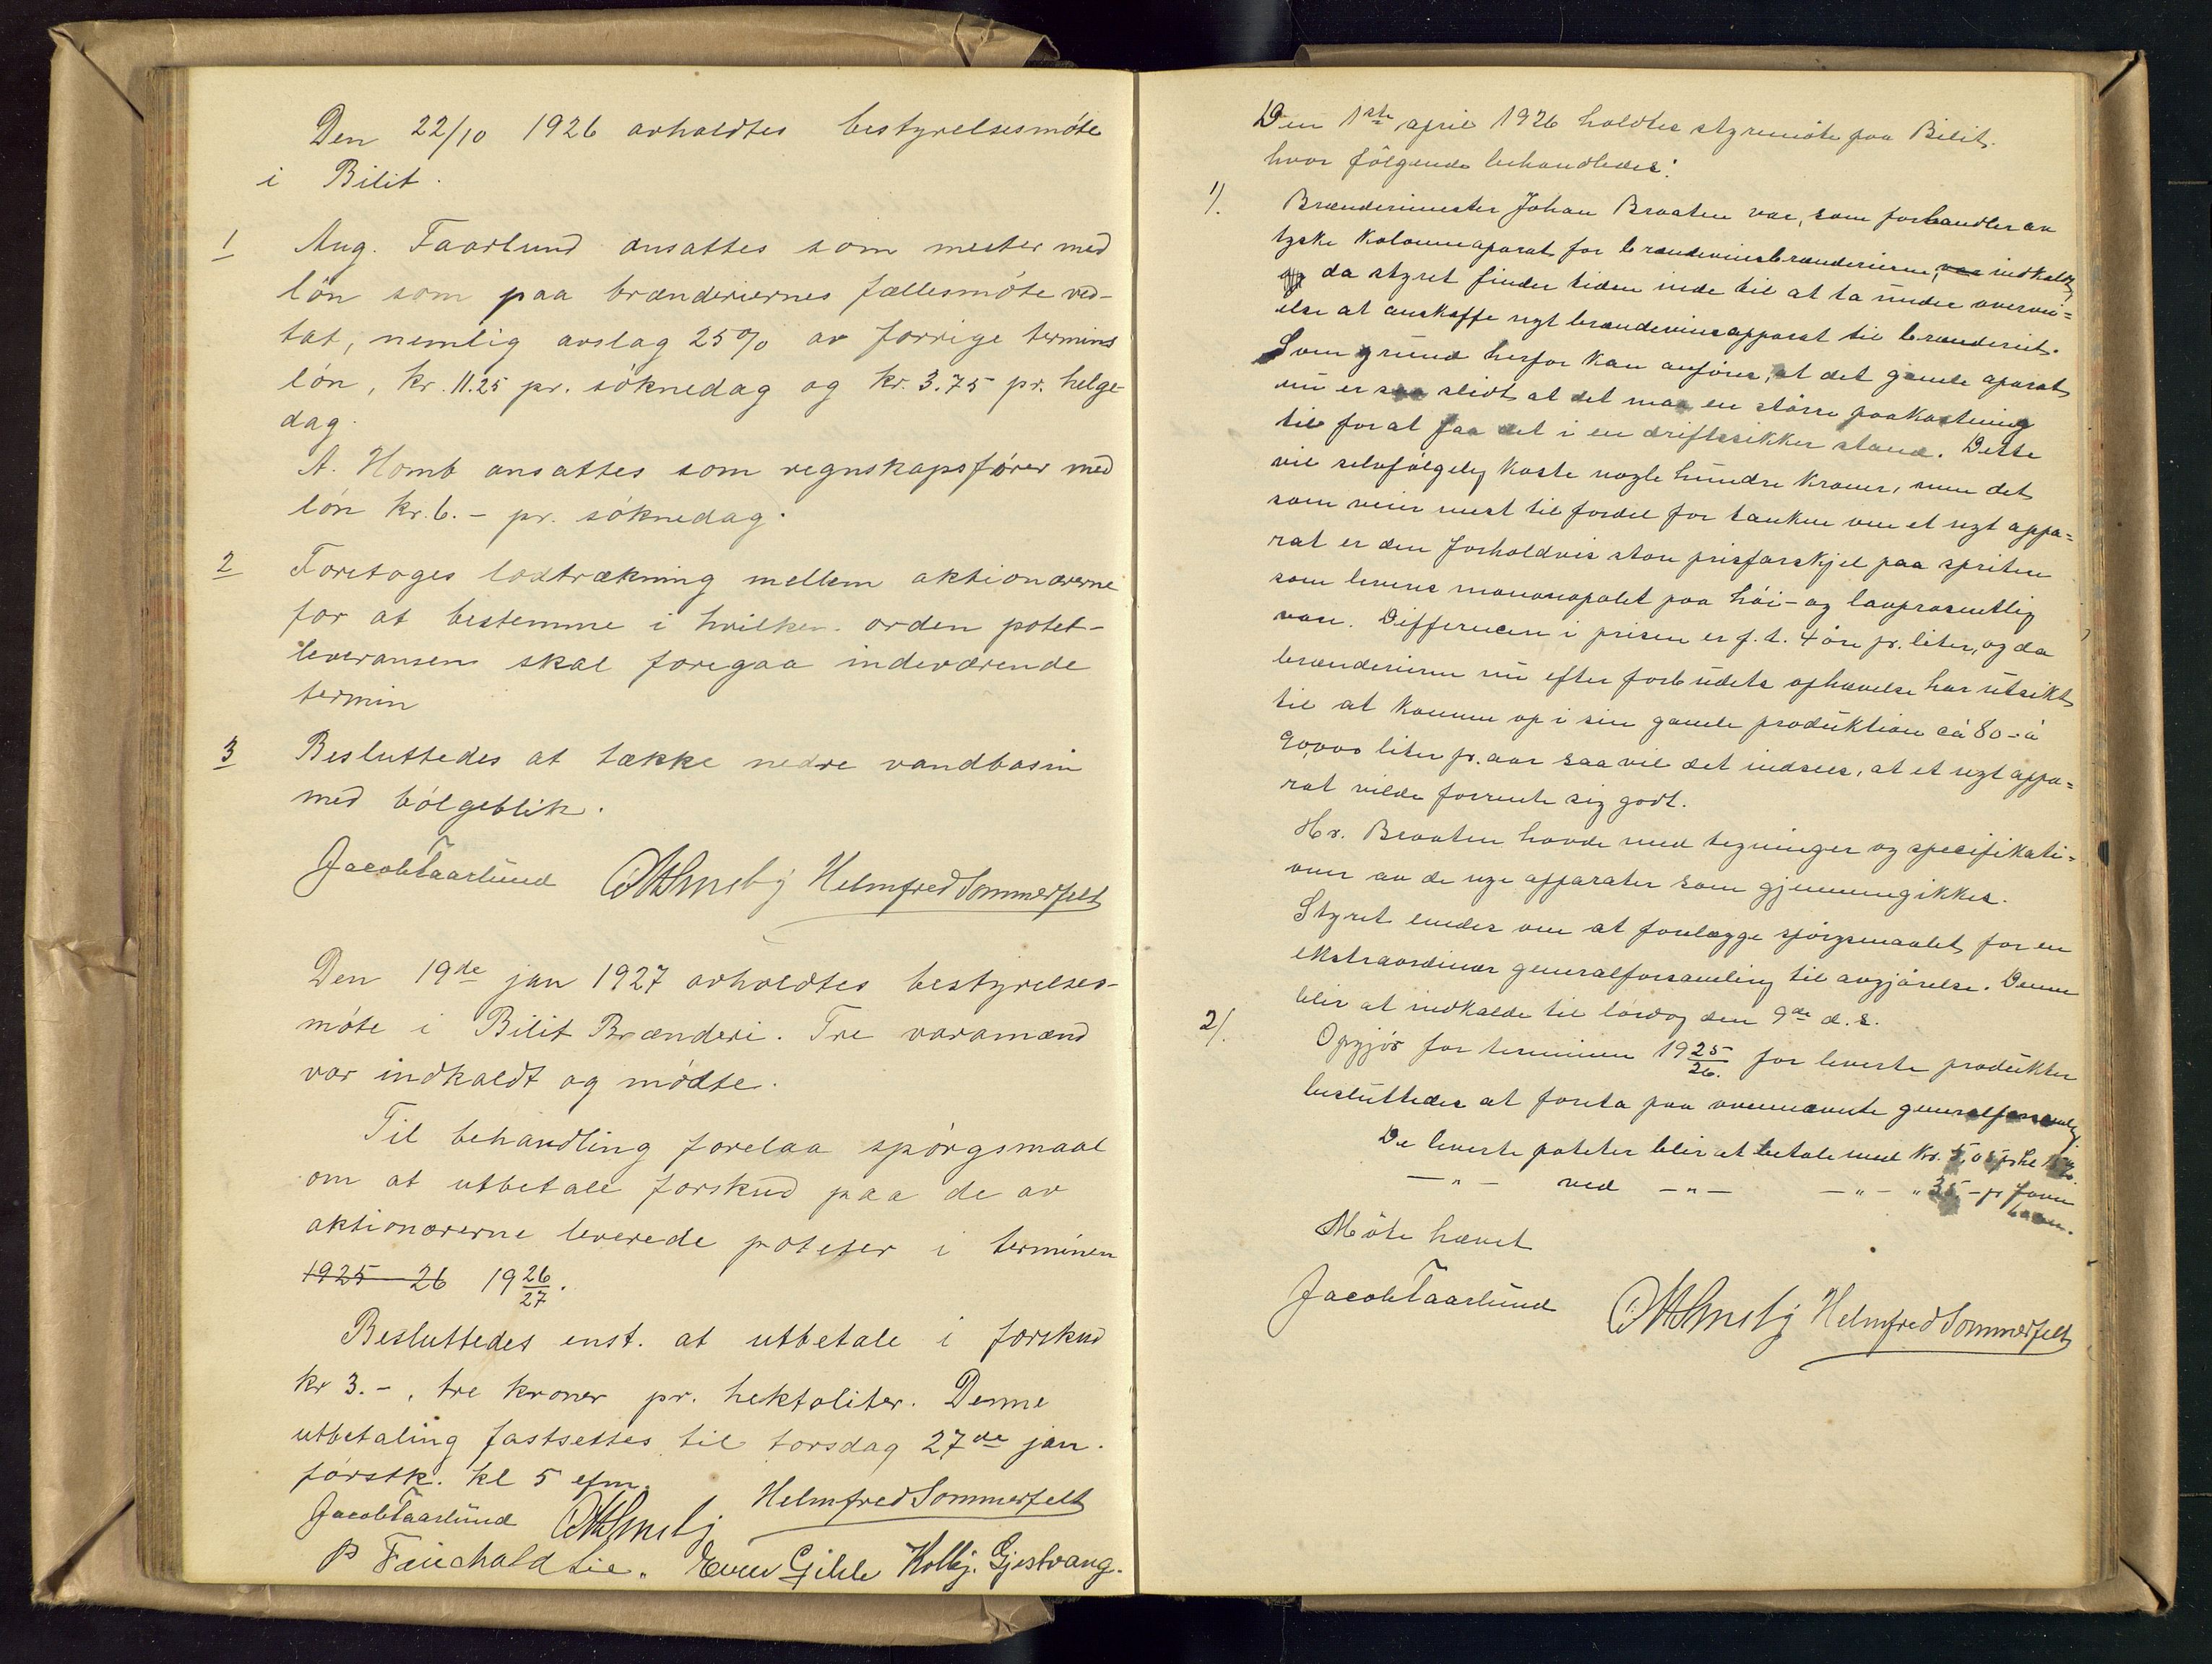 Den 22/10 1926 avholdtes bestyrelsesmöte
i Bilit.
1 Aug. Faarlund ansattes som mester med
lön som paa brænderiernes fællesmöte ved-
tat, nemlig avslag 25% av forrige termins
lön, kr. 11.25 pr. söknedag og kr. 3.75 pr. helge-
dag.
A. Homb ansattes som regnskapsförer med
lön kr. 6.- pr. söknedag.
2 Foretoges lodtrækning mellem aktionærerne
for at bestemme i hvilken orden potet-
leveransen skal foregaa indeværende
termin
3 Besluttedes at tække nedre vandbasin
med bölgeblik.
Jacob Faarlund Helmfred Sommerfelt
Den 19de jan 1927 avholdtes bestyrelses-
möte i Bilit Brænderi. Tre varamænd
var indkaldt og mödte.
Til behandling forelaa spörgsmaal
om at utbetale forskud paa de av
aktionærerne leverede poteter i terminen
1925-26 1926/27.
Besluttedes enst. at utbetale i forskud
kr 3.-, tre kroner pr. hektoliter. Denne
utbetaling fastsettes til torsdag 27de jan.
förstk. kl 5 efm.
Helmfred Sommerfelt
Jacob Faarlund
P Fauchald Lie. Even Gihle Kolbj. Gjestvang.
Den 1ste april 1926 holdtes styremöte paa Bilit.
hvor fölgende behandledes:
1). Brænderimester Johan Braaten var, som forhandler av
tyske Kolonneaparat for brændevinsbrænderierne, var indkaldt,
og da styret finder tiden inde til at ta under overvei=
else at anskaffe nyt brændevinsapparat til brænderiet.
Som grund herfor kan anföres, at det gamle aparat
nu er saa slidt at det maa en större paakostning
til for at faa det i en driftssikker stand. Dette
vil selvfölgelig koste nogle hundre kroner, men det
som veier mest til fordel for tanken om et nyt appa=
rat er den forholdvis store prisforskjel paa spriten
som leveres monopolet paa höi- og lavprosentlig
vare. Differencen i prisen er f. t. 4 öre pr. liter, og da
brænderierne nu efter forbudets ophævelse har utsikt
til at komme op i sin gamle produktion ca 80-à
90,000 liter pr. aar saa vil det indsees, at et nyt appa=
rat vilde forrente sig godt.
Hr. Braaten havde med tegninger og spesifikati=
oner av de nye apparater som gjennemgikkes.
Styret enedes om at forelægge spörgsmaalet for en
ekstraordinær generalforsamling til avgjörelse. Denne
blir at indkalde til lördag den 9de d.s.
2). Opgjör for terminen 1925/26. for leverte produkter
besluttedes at foreta paa ovennævnte generalforsamling.
De leverte poteter blir at betale med Kr. 5,05 pr hl
—"— ved —"— —"— " 35,- pr favn
Möte hævet
Jacob Faarlund Helmfred Sommerfelt